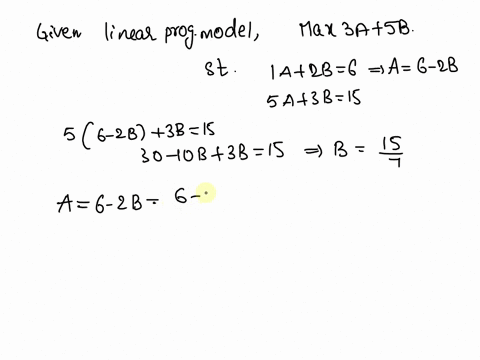 Given linear prog. model, Max 3A+5B.
st. 1A+2B=6 ⇒ A=6-2B
5A+3B=15
5(6-2B)+3B=15
30-10B+3B=15 ⇒ B = 15/7
A=6-2B= 6-